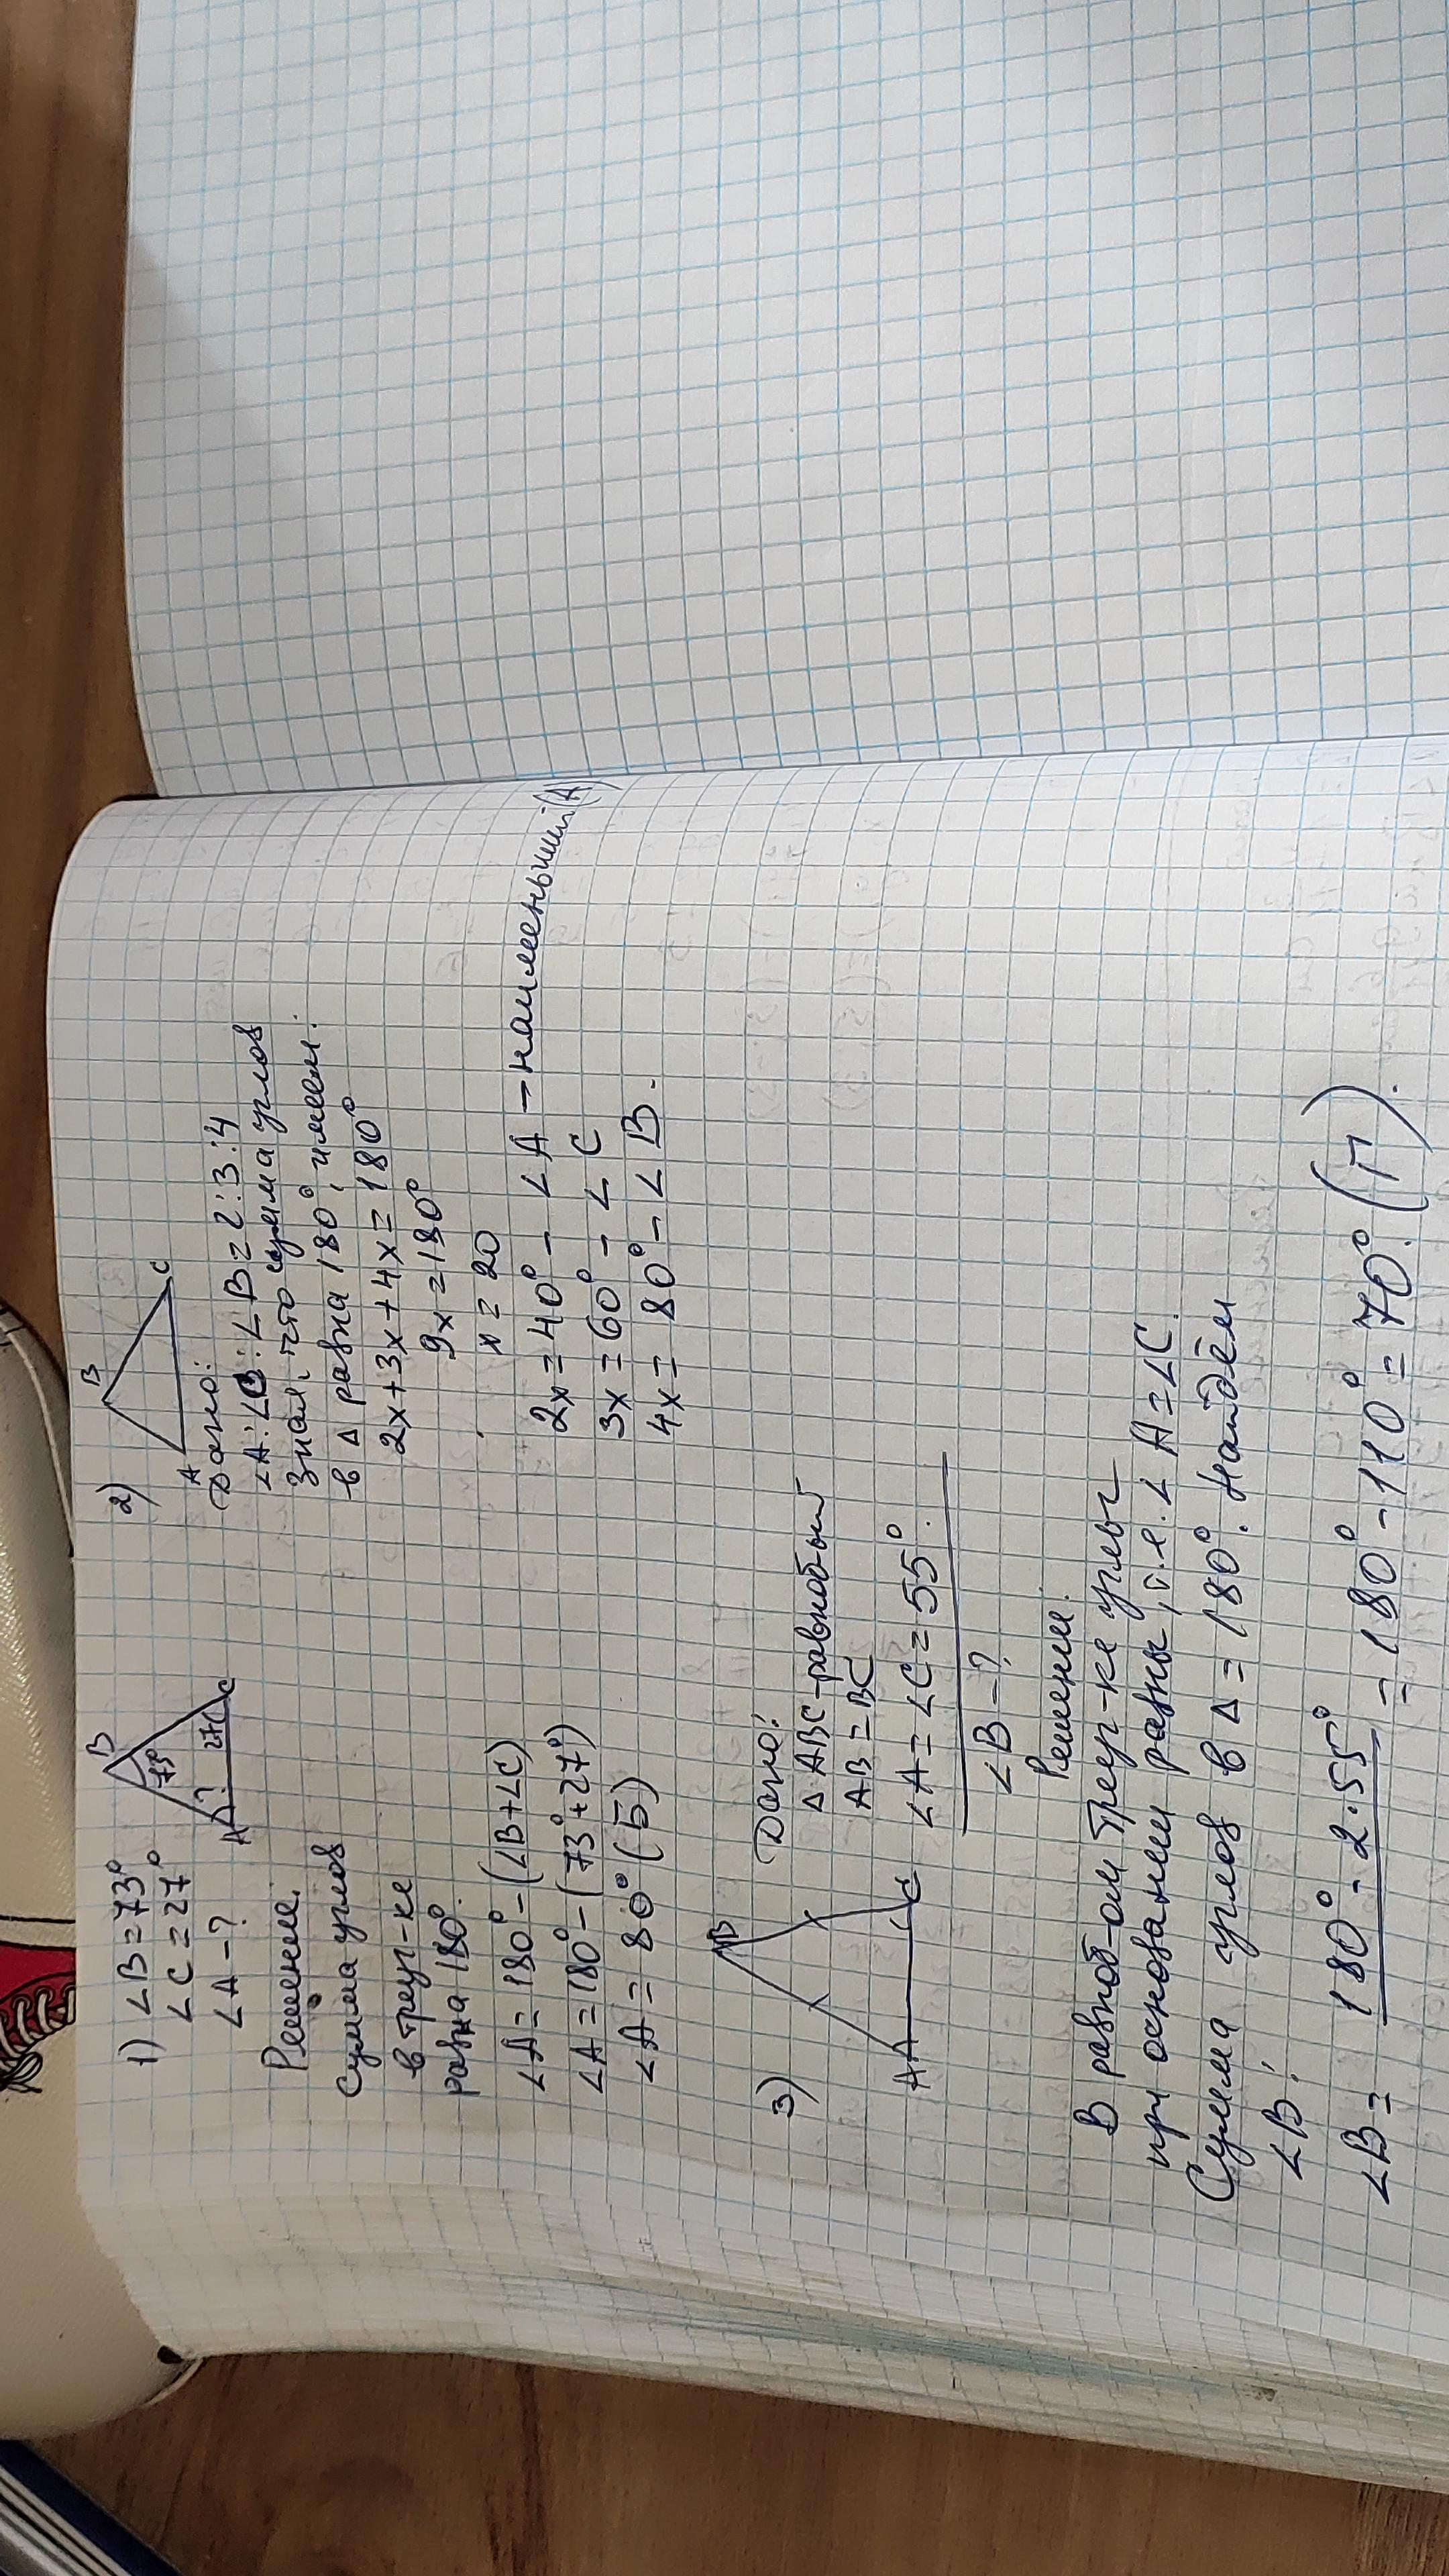 1) ∠B=73°
∠C=27°
∠A-?
B
73°
A ? 27 C
Решение.
Сумма углов
в треуг-ке
равна 180°.
∠A=180°-(∠B+∠C)
∠A=180°-(73°+27°)
∠A=80° (Б)
2)
B
A C
Дано:
∠A:∠C:∠B=2:3:4
Зная, что сумма углов
в Δ равна 180°, имеем:
2x+3x+4x=180°
9x=180°
x=20
2x=40° - ∠A - наименьший (А)
3x=60° - ∠C
4x=80° - ∠B.
3)
B
A C
Дано:
Δ ABC-равноб-ый
AB=BC
∠A=∠C=55°.
∠B-?
Решение.
В равноб-ом треуг-ке углы
при основании равны, т.е. ∠A=∠C.
Сумма углов в Δ=180°. Найдём
∠B:
∠B= 180°-2·55° = 180°-110°=70°. (Г).